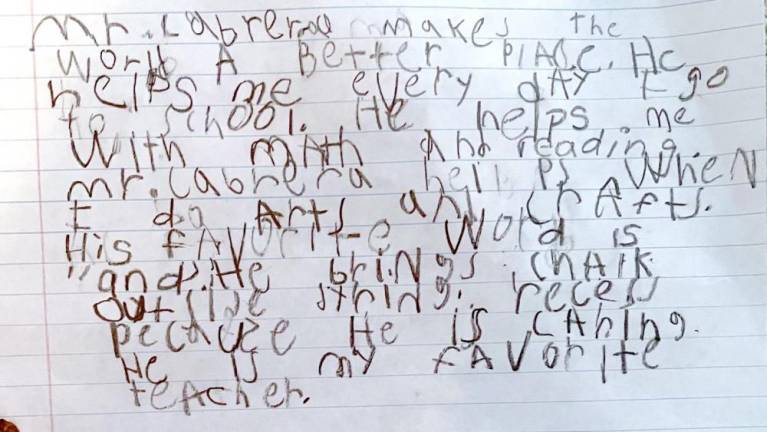 Mr. Cabrera makes the
world A Better PlAce. He
helps me every dAY I go
to school. He helps me
With mAth And reading.
mr. Cabrera hellps WheN
I do Arts and CrAfts.
His fAVorit-e Word is
"and". He briNgs chAlk
outside string. recess
pecauze He is CAhing.
He is my fAVorite
teAcher.